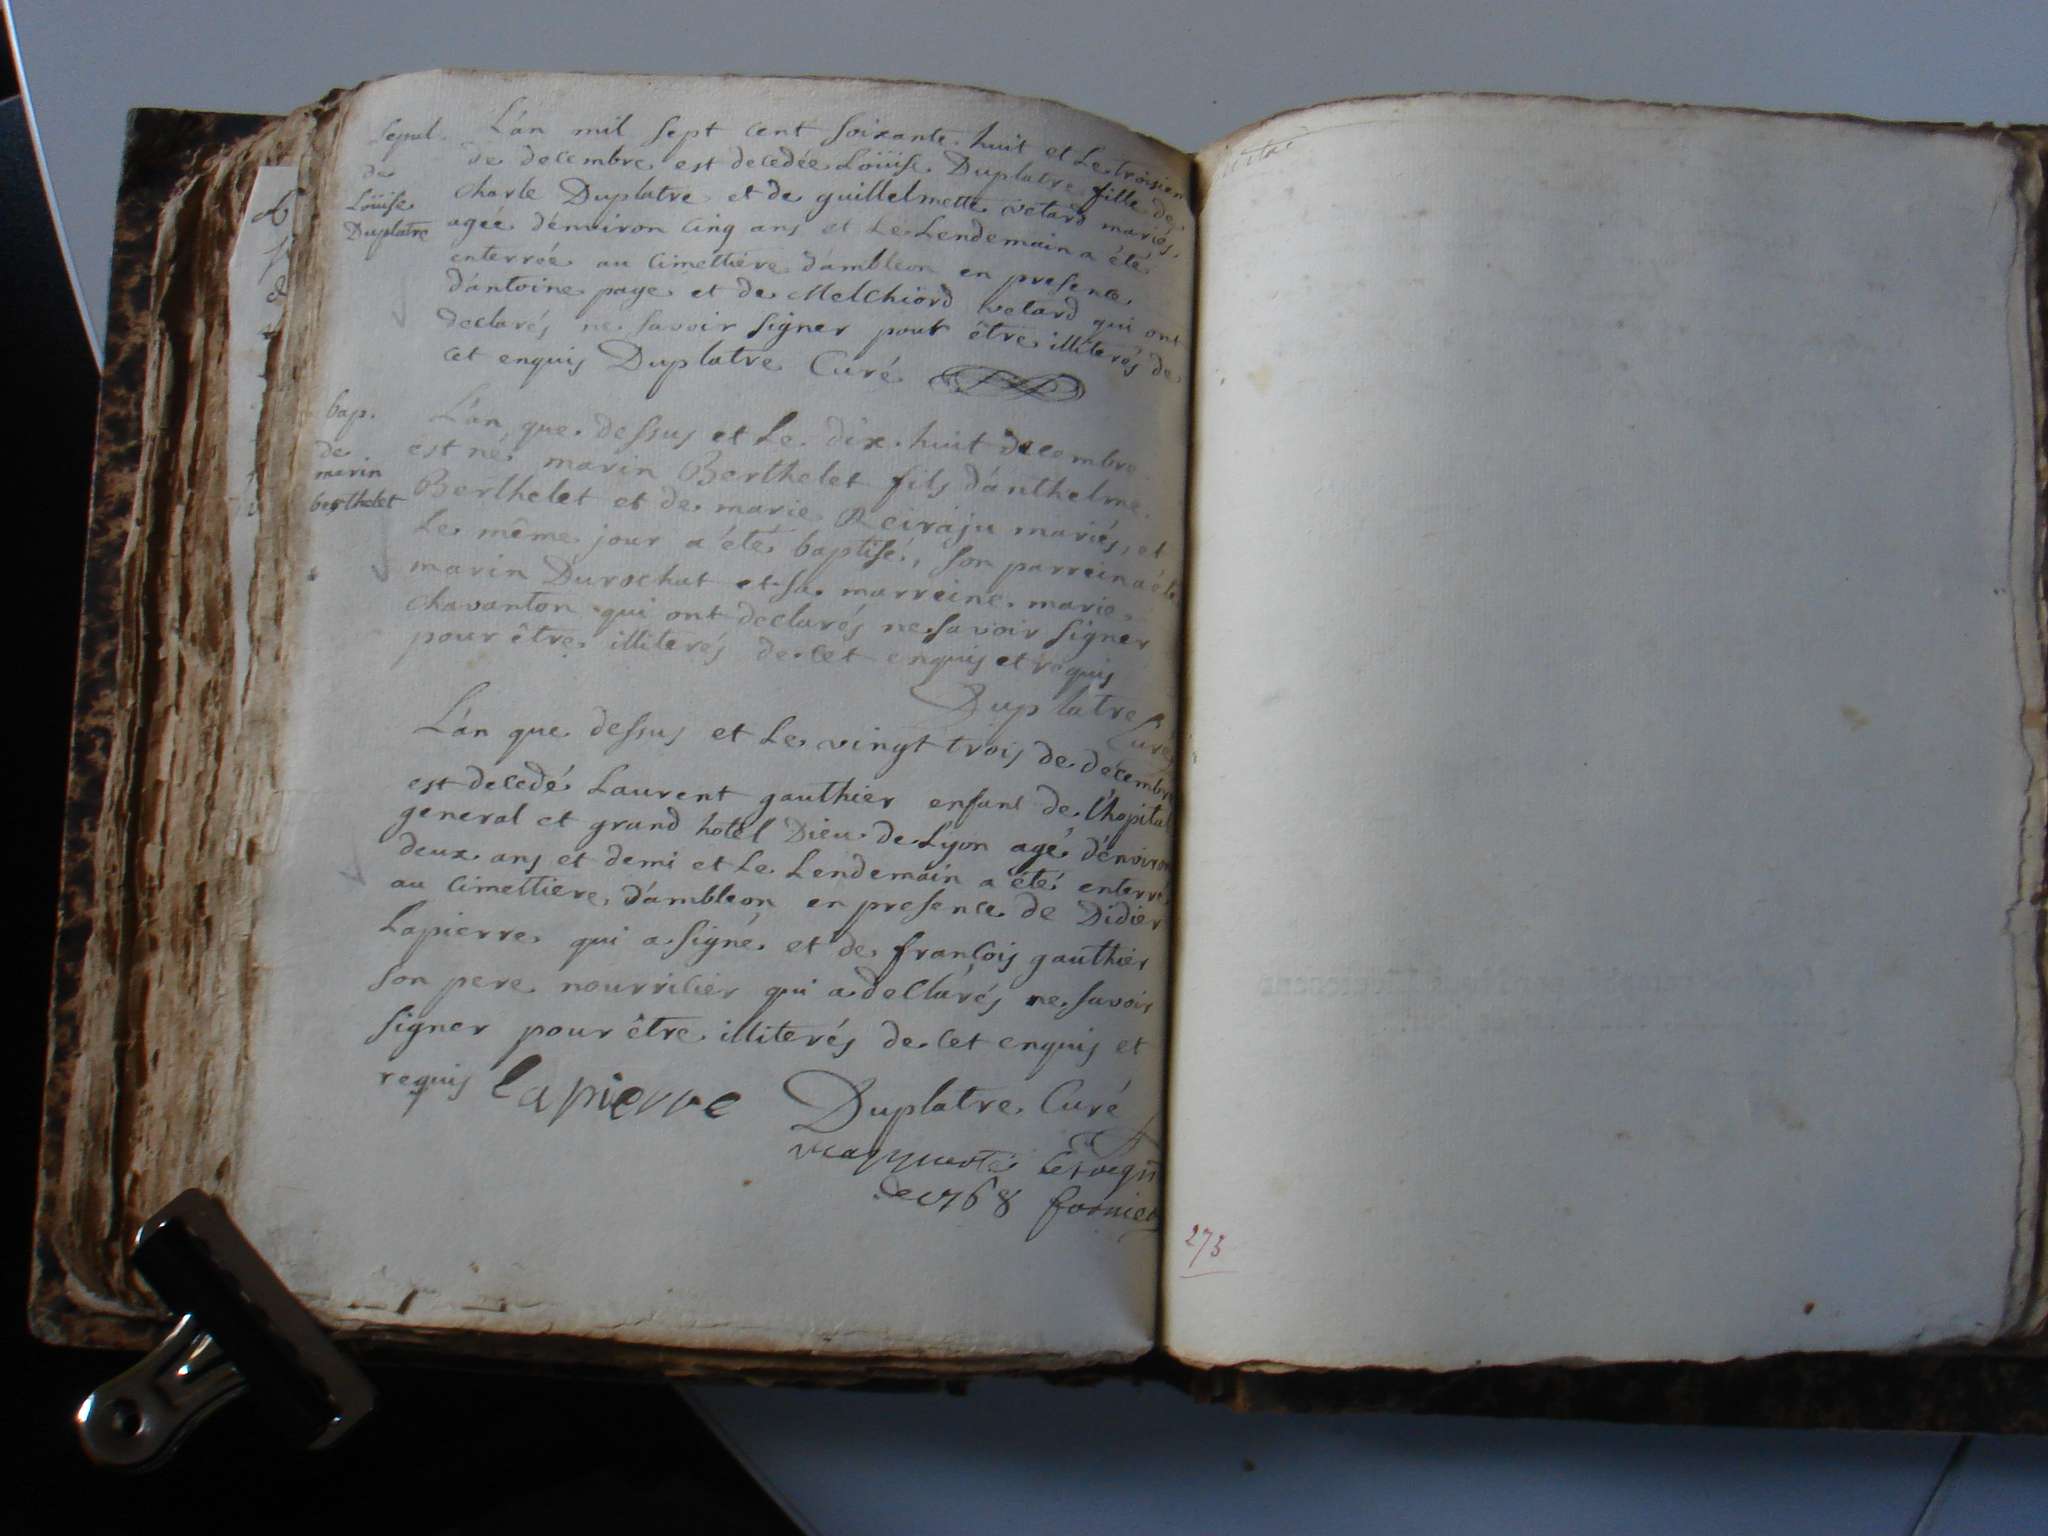 Sepul.
de
Loüise
Duplatre
L'an mil sept cent soixante huit et Le troisiem
de decembre est decedée Loüise Duplatre fille de
charle Duplatre et de guillelmette vetard mariés,
agée d'environ cinq ans et Le Lendemain a été
enterrée au cimettiére d'ambleon en presence
d'antoine page et de Melchiord vetard qui ont
declarés ne savoir signer pour être illiterés de
cet enquis Duplatre Curé
bap.
de
marin
berthelet
L'an que dessus et Le dix huit decembre
est né marin Berthelet fils d'anthelme
Berthelet et de marie Reiraju mariés, et
Le même jour a été baptisé, son parrein a été
marin Durochat et sa marreine marie
chavanton qui ont declarés ne savoir signer
pour être illiterés de cet enquis et requis
Duplatre Curé
L'an que dessus et Le vingt trois de décembre
est decedé Laurent gauthier enfant de l'hopital
general et grand hotel Dieu de Lyon agé d'environ
deux ans et demi et Le Lendemain a été enterré
au cimettiere d'ambleon en presence de Didier
Lapierre qui a signé et de françois gauthier
son pere nourricier qui a declarés ne savoir
signer pour être illiterés de cet enquis et
requis lapierre Duplatre Curé
de 1768 fornier
273